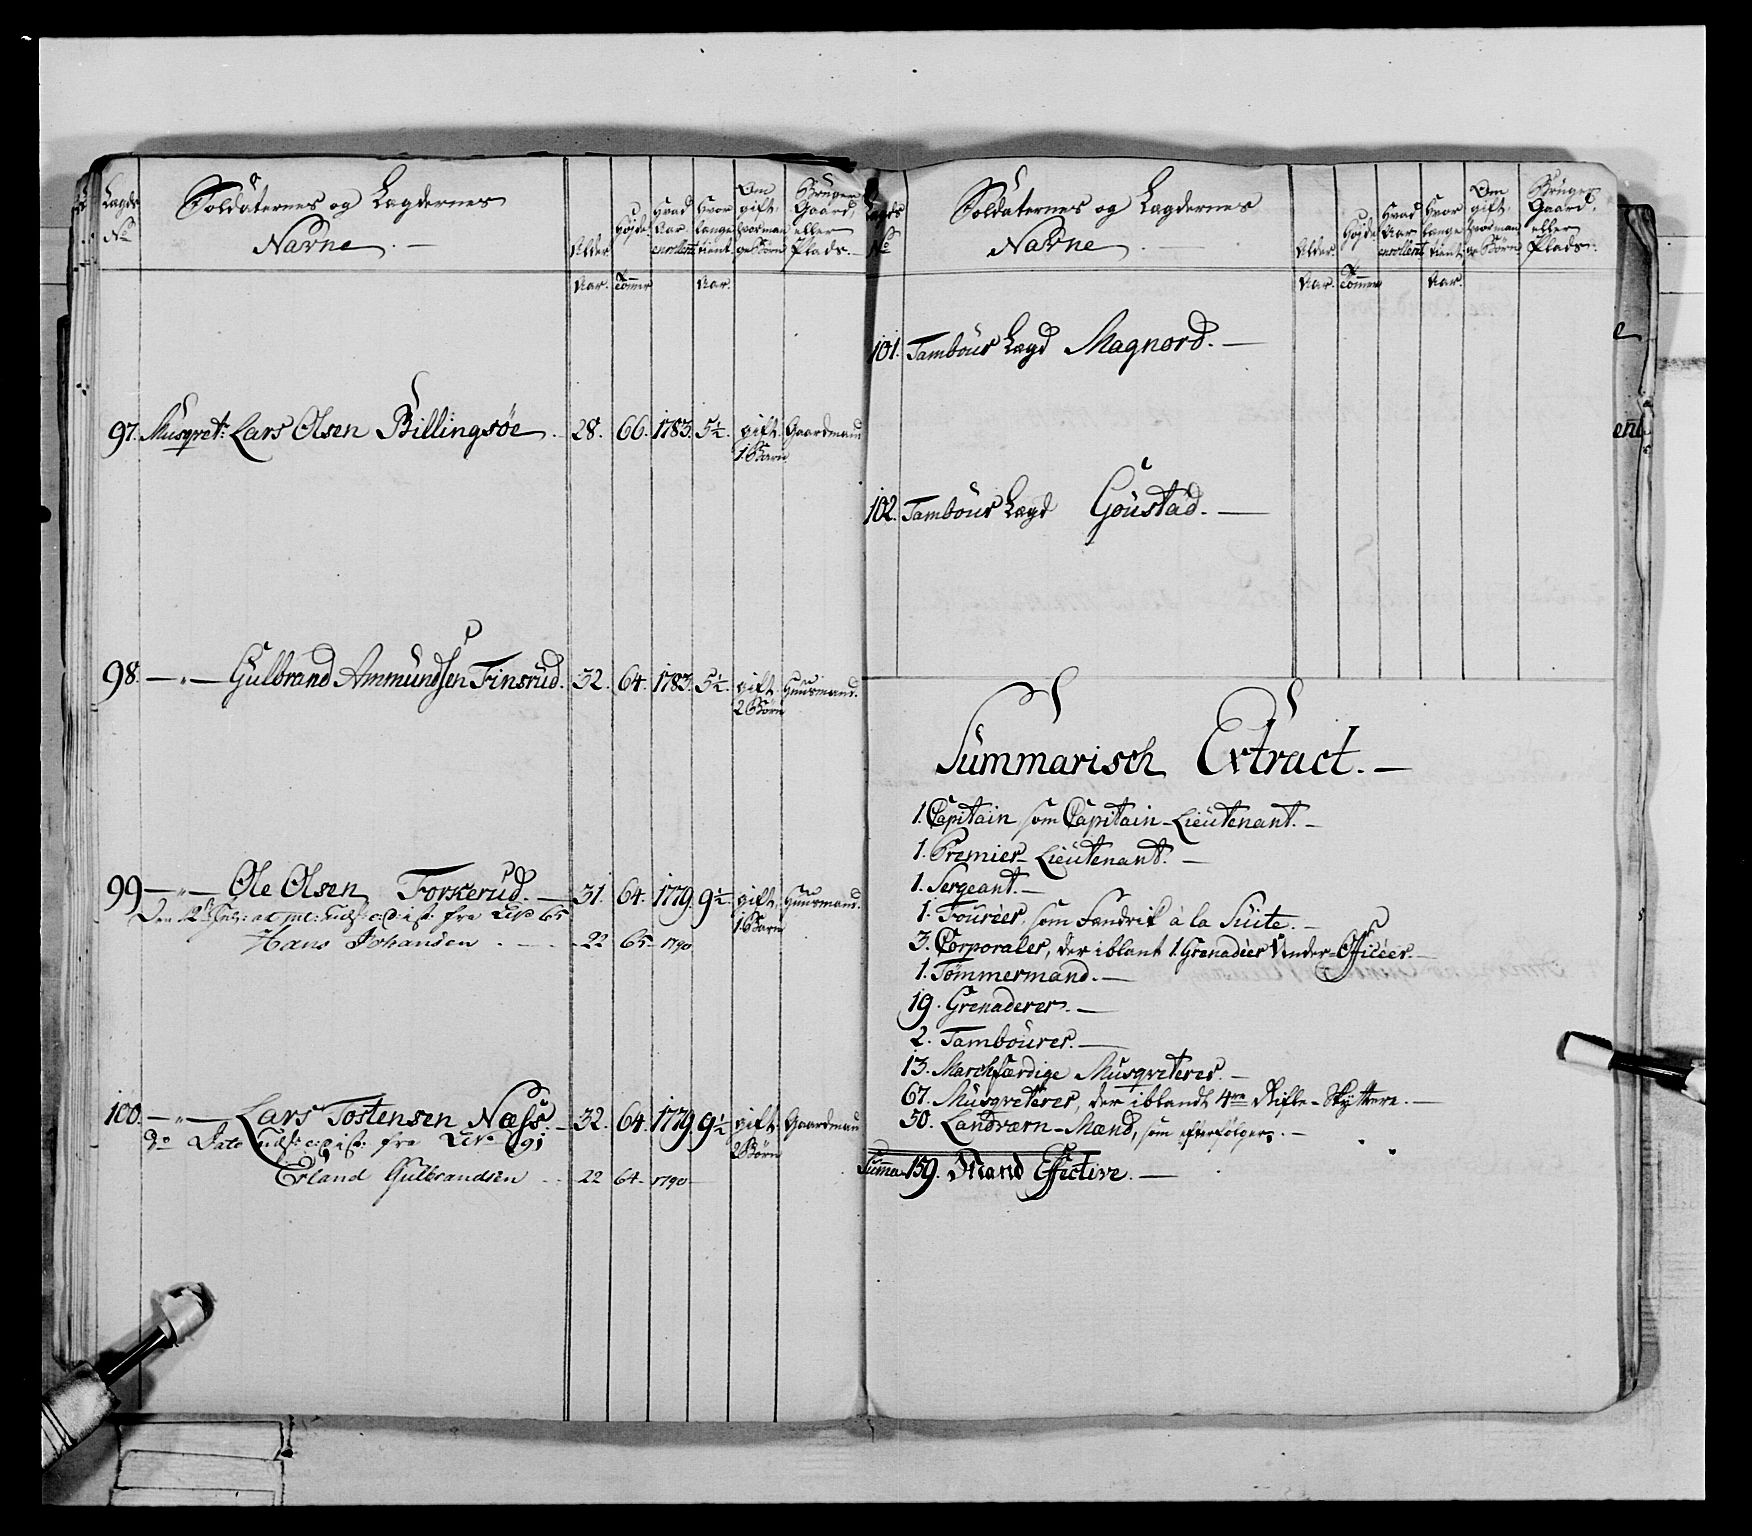 Lægds No
Soldaternes og Lægdernes
Navne. —
Alder
Høyde
Hvad Aar enrollert
Hvor længe tient
Om gift, hvor mange Børn
Bruger Gaard, eller Plads.
Aar. Tommer Aar.
97. Musqvet: Lars Olsen Billingsøe. 28. 66. 1783. 5½. gift. Gaardmand
1. Barn
98. —"— Gulbrand Ammundsen Finsrud. 32. 64. 1783. 5½. gift. Huusmand.
2 Børn
99 —"— Ole Olsen Forkerud. — 31. 64. 1779. 9½. gift. Huusmand.
1. Barn
Hans Johansen . - - 22 65 1790
100. —"— Lars Tostensen Næss. 32. 64. 1779. 9½ gift. Gaardmand
2 Børn
do Dato
Erland Gulbrandsen - - 22 64 1790
Lægds No
Soldaternes og Lægdernes
Navne.
Alder.
Høyde
Hvad Aar enrollert
Hvor længe tient
Om gift, hvor mange Børn
Bruger Gaard, eller Plads.
Aar. Tommer Aar.
101. Tambour Lægd Magnord. —
102. Tambour Lægd Goustad. —
Summarisch Extract. —
1. Capitain som Capitain-Lieutenant. —
1. Premier-Lieutenant. —
1. Sergeant. —
1. Fourèer, som Fændrik à la Suite. —
3. Corporaler, der iblant 1. Grenadeer Under-Officèer. —
1. Tømmermand. —
19. Grenaderer. —
2. Tambourer. —
13. Marchfærdige Musqveterer. —
67. Musqveterer, der iblandt 4re Rifle-Skyttere. —
50. Landværn-Mænd, som efterfølger. —
Summa 159. Mand Effective. —